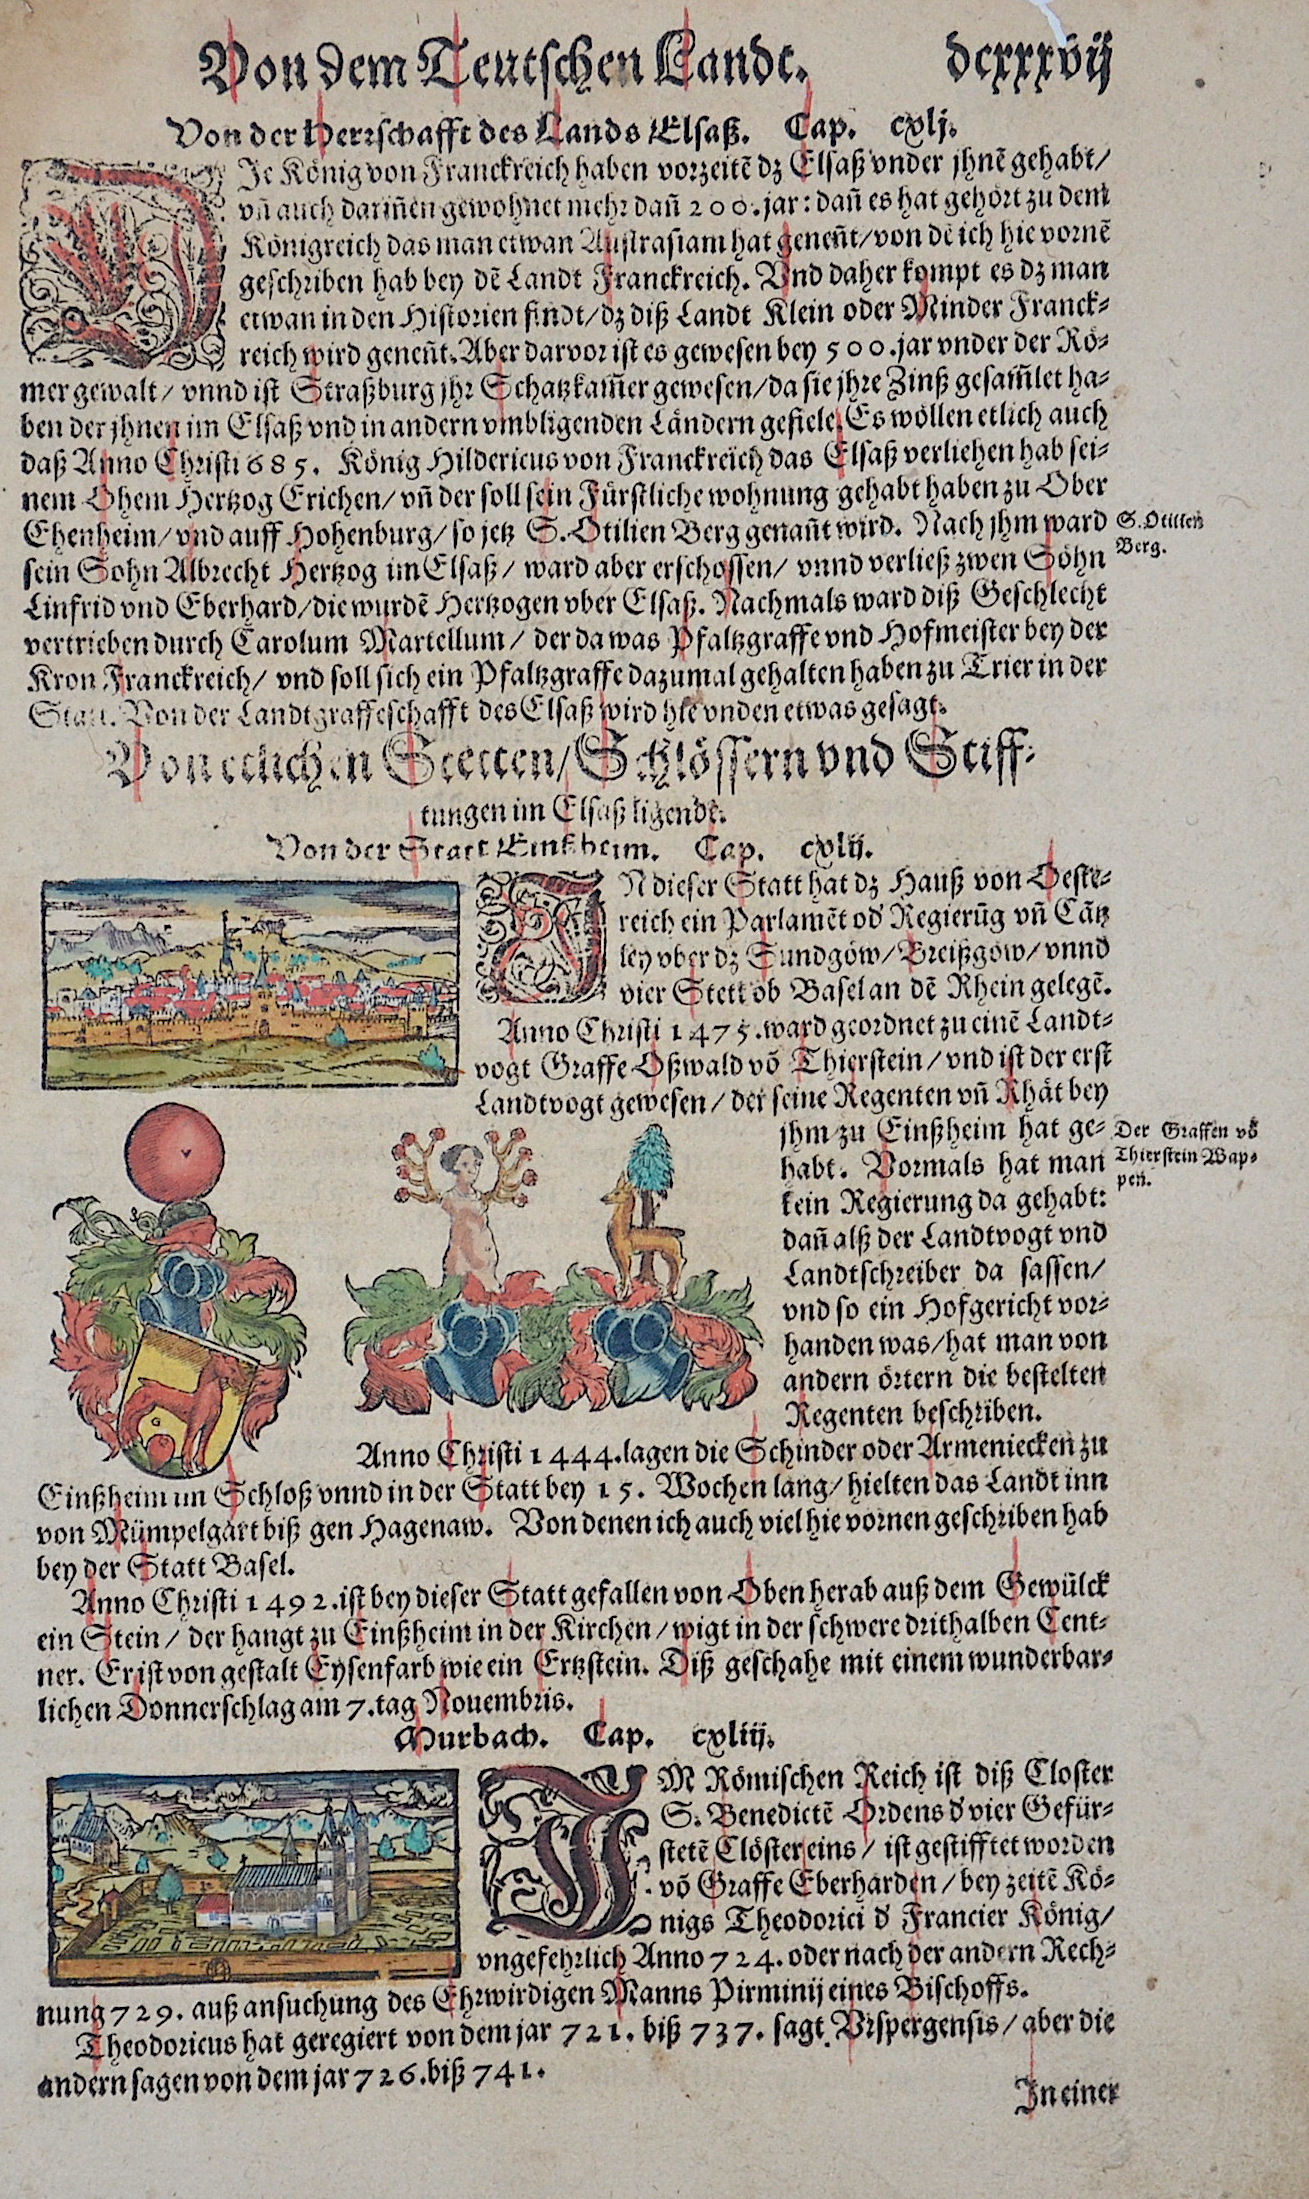 Von dem Teutschen Landt. dcxxxvij
Von der Herrschafft des Lands Elsaß. Cap. cxlj.
DIe König von Franckreich haben vorzeitẽ dz Elsaß vnder jhnẽ gehabt/
vñ auch dariñen gewohnet mehr dañ 200. jar: dañ es hat gehört zu dem
Königreich das man etwan Austrasiam hat geneñt/ von dẽ ich hie vornẽ
geschriben hab bey dẽ Landt Franckreich. Vnd daher kompt es dz man
etwan in den Historien findt/ dz diß Landt Klein oder Minder Franck-
reich wird geneñt. Aber darvor ist es gewesen bey 500. jar vnder der Rö-
mer gewalt/ vnnd ist Straßburg jhr Schatzkam̃er gewesen/ da sie jhre Zinß gesam̃let ha-
ben der jhnen im Elsaß vnd in andern vmbligenden Ländern gefiele. Es wöllen etlich auch
daß Anno Christi 685. König Hildericus von Franckreich das Elsaß verliehen hab sei-
nem Ohem Hertzog Erichen/ vñ der soll sein Fürstliche wohnung gehabt haben zu Ober
Ehenheim/ vnd auff Hohenburg/ so jetz S. Otilien Berg genañt wird. Nach jhm ward
S. Otilien
Berg.
sein Sohn Albrecht Hertzog im Elsaß/ ward aber erschossen/ vnnd verließ zwen Söhn
Linfrid vnd Eberhard/ die wurdẽ Hertzogen vber Elsaß. Nachmals ward diß Geschlecht
vertrieben durch Carolum Martellum/ der da was Pfaltzgraffe vnd Hofmeister bey der
Kron Franckreich/ vnd soll sich ein Pfaltzgraffe dazumal gehalten haben zu Trier in der
Statt. Von der Landtgraffeschafft des Elsaß wird hie vnden etwas gesagt.
Von etlichen Stetten/ Schlössern vnd Stiff-
tungen im Elsaß ligende.
Von der Statt Einßheim. Cap. cxlij.
IN dieser Statt hat dz Hauß von Oeste-
reich ein Parlamẽt od' Regierũg vñ Cãtz
ley vber dz Sundgöw/ Breißgöw/ vnnd
vier Stett ob Basel an dẽ Rhein gelegẽ.
Anno Christi 1475. ward geordnet zu einẽ Landt-
vogt Graffe Oßwald võ Thierstein/ vnd ist der erst
Landtvogt gewesen/ der seine Regenten vñ Rhät bey
jhm zu Einßheim hat ge-
Der Graffen võ
Thierstein Wap-
pen.
habt. Vormals hat man
kein Regierung da gehabt:
dañ alß der Landtvogt vnd
Landtschreiber da sassen/
vnd so ein Hofgericht vor-
handen was/ hat man von
andern örtern die bestelten
Regenten beschriben.
G
Anno Christi 1444. lagen die Schinder oder Armeniecken zu
Einßheim im Schloß vnnd in der Statt bey 15. Wochen lang/ hielten das Landt inn
von Mümpelgart biß gen Hagenaw. Von denen ich auch viel hie vornen geschriben hab
bey der Statt Basel.
Anno Christi 1492. ist bey dieser Statt gefallen von Oben herab auß dem Gewülck
ein Stein/ der hangt zu Einßheim in der Kirchen/ wigt in der schwere drithalben Cent-
ner. Er ist von gestalt Eysenfarb wie ein Ertzstein. Diß geschahe mit einem wunderbar-
lichen Donnerschlag am 7. tag Nouembris.
Murbach. Cap. cxliij.
IM Römischen Reich ist diß Closter
S. Benedictẽ Ordens d' vier Gefür-
stetẽ Clöster eins/ ist gestifftet worden
võ Graffe Eberharden/ bey zeitẽ Kö-
nigs Theodorici d' Francier König/
vngefehrlich Anno 724. oder nach der andern Rech-
nung 729. auß ansuchung des Ehrwirdigen Manns Pirminij eines Bischoffs.
Theodoricus hat geregiert von dem jar 721. biß 737. sagt Vrspergensis/ aber die
andern sagen von dem jar 726. biß 741.
In einer